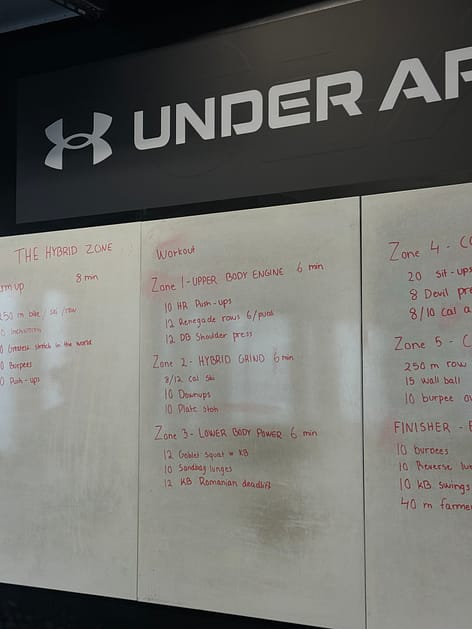 UNDER AR
THE HYBRID ZONE
rm up 8 min
250 m bike / ski / row
0 inchworms
0 Greatest stretch in the world
0 Burpees
0 Push-ups
Workout
Zone 1 - UPPER BODY ENGINE 6 min
10 HR Push-ups
12 Renegade rows 6/push
12 DB Shoulder press
Zone 2 - HYBRID GRIND 6 min
8/12 Cal Ski
10 Downups
10 Plate
Zone 3 - LOWER BODY POWER 6 min
12 Goblet Squat KB
10 Sandbag lunges
12 KB Romanian deadlift
Zone 4 - CO
20 Sit-ups
8 Devil pre
8/10 Cal a
Zone 5 - C
250 m row
15 wall ball
10 burpee ov
FINISHER -
10 burpees
10 Reverse lun
10 KB swings
40 m farme